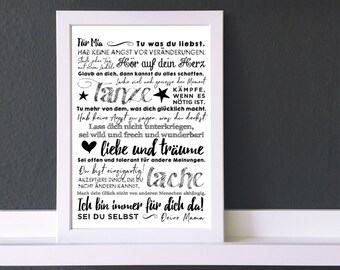 Für Mia
Tu was du liebst.
HAB KEINE ANGST VOR VERÄNDERUNGEN.
Starte jeden Tag
mit einem Lächeln.
Hör auf dein Herz
Glaub an dich, dann kannst du alles schaffen.
Lache viel und genieße den Moment
Tanze
KÄMPFE,
WENN ES
NÖTIG IST.
Tu mehr von dem, was dich glücklich macht.
Hab keine Angst zu sagen, was du denkst
Lass dich nicht unterkriegen,
sei wild und frech und wunderbar!
liebe und träume
Sei offen und tolerant für andere Meinungen.
Du bist einzigartig!
AKZEPTIERE DINGE, DIE DU
NICHT ÄNDERN KANNST.
lache
Mach dein Glück nicht von anderen Menschen abhängig.
Ich bin immer für dich da!
SEI DU SELBST
Deine Mama